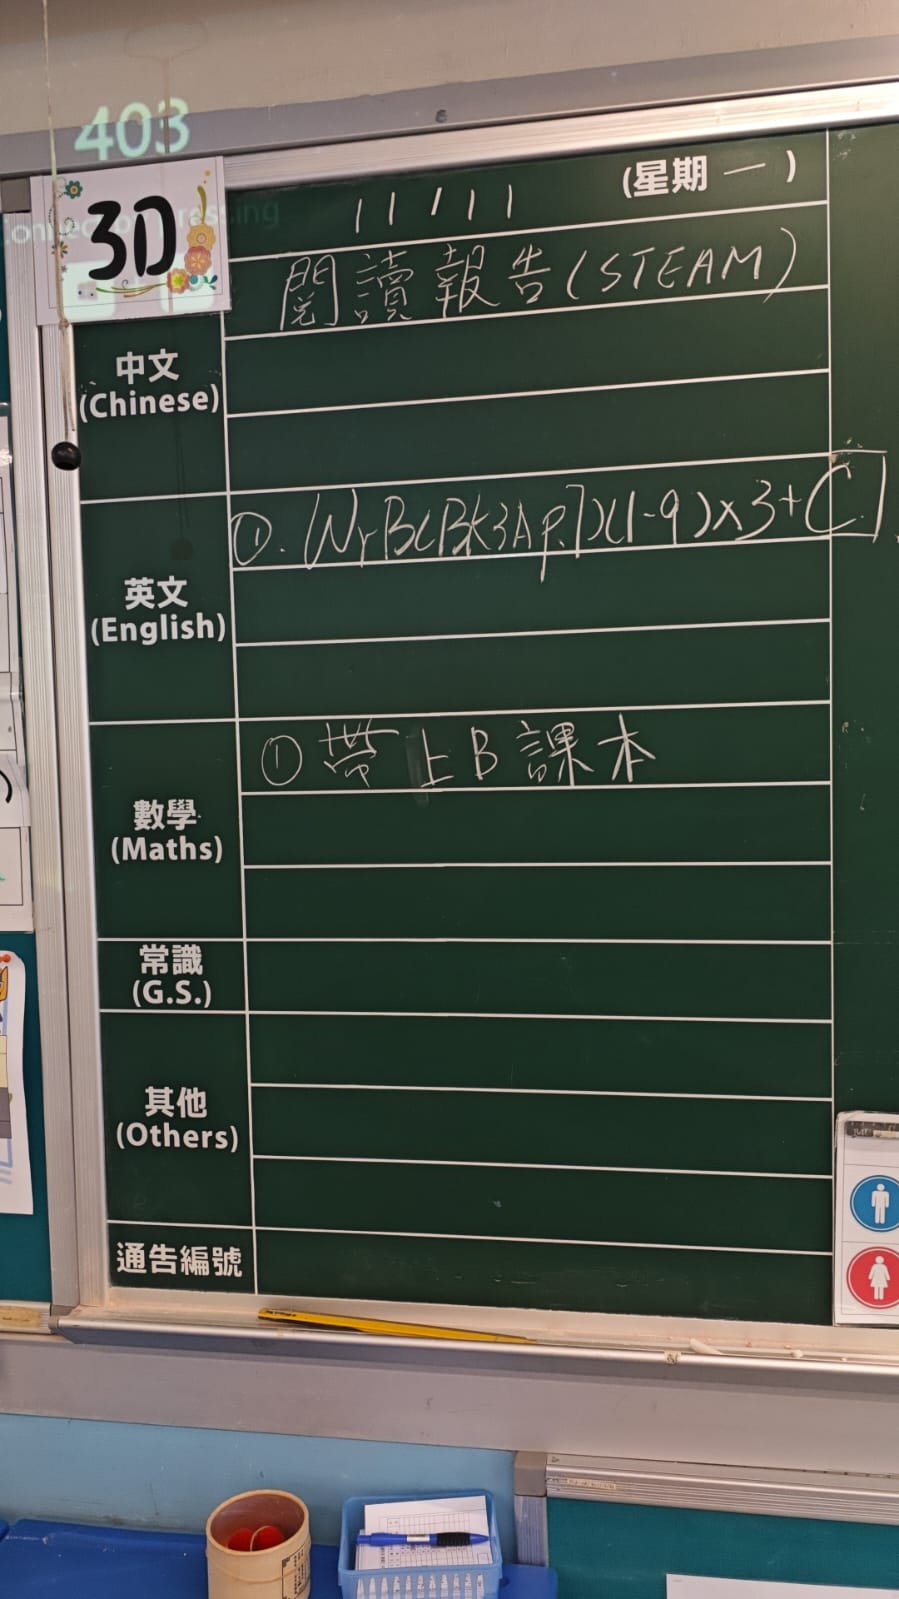 403
3D
11/11 (星期一)
閱讀報告(STEAM)
中文
(Chinese)
①. WrB(Bk3A p.7)(1-9)x3+C.
英文
(English)
① 帶上B課本
數學
(Maths)
常識
(G.S.)
其他
(Others)
通告編號